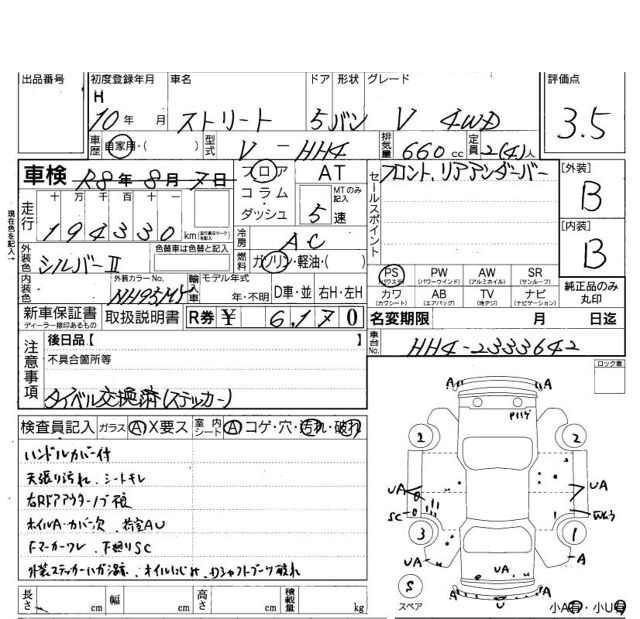 出品番号 初度登録年月 車名 ドア 形状 グレード 評価点
H 10年 月 ストリート 5 バン V 4WD 3.5
車歴 自家用・( ) 型式 V - HH4 排気量 660 cc 定員 2(4)人
車検 R8年 8月 7日 フロア コラム・ダッシュ AT MTのみ記入 5速 セールスポイント フロント、リアアンダーバー [外装] B
走行 十 万 千 百 十 一
194330 km
現在色を記入
外装色 シルバーⅡ 色替車は色替と記入 冷房 AC [内装] B
燃料 ガソリン・軽油・( )
内装色 外装カラーNo. NH95M 輸入車 モデル年式 年・不明 D車・並 右H・左H
PS (パワステ) PW (パワーウインド) AW (アルミホイル) SR (サンルーフ)
カワ (カワシート) AB (エアバッグ) TV (地デジ) ナビ (ナビゲーション)
純正品のみ丸印
新車保証書 ディーラー捺印あるもの 取扱説明書 R券 ¥ 6,170 名変期限 月 日迄
注意事項 後日品【 】 車台No. HH4-2333642
不具合箇所等 ロック車
タイベル交換済(ステッカー)
検査員記入 ガラス A X要ス 室内シート A コゲ・穴・汚れ・破れ
ハンドルカバー付
天張り汚れ、シートキレ
ホイルA・カバー欠
Fマーカーワレ、下廻りSC
A A
2 2
UA UA
SC
3 1
UA A
UA UA
U
S
スペア 小A有・小U有
長さ cm 幅 cm 高さ cm 積載量 kg